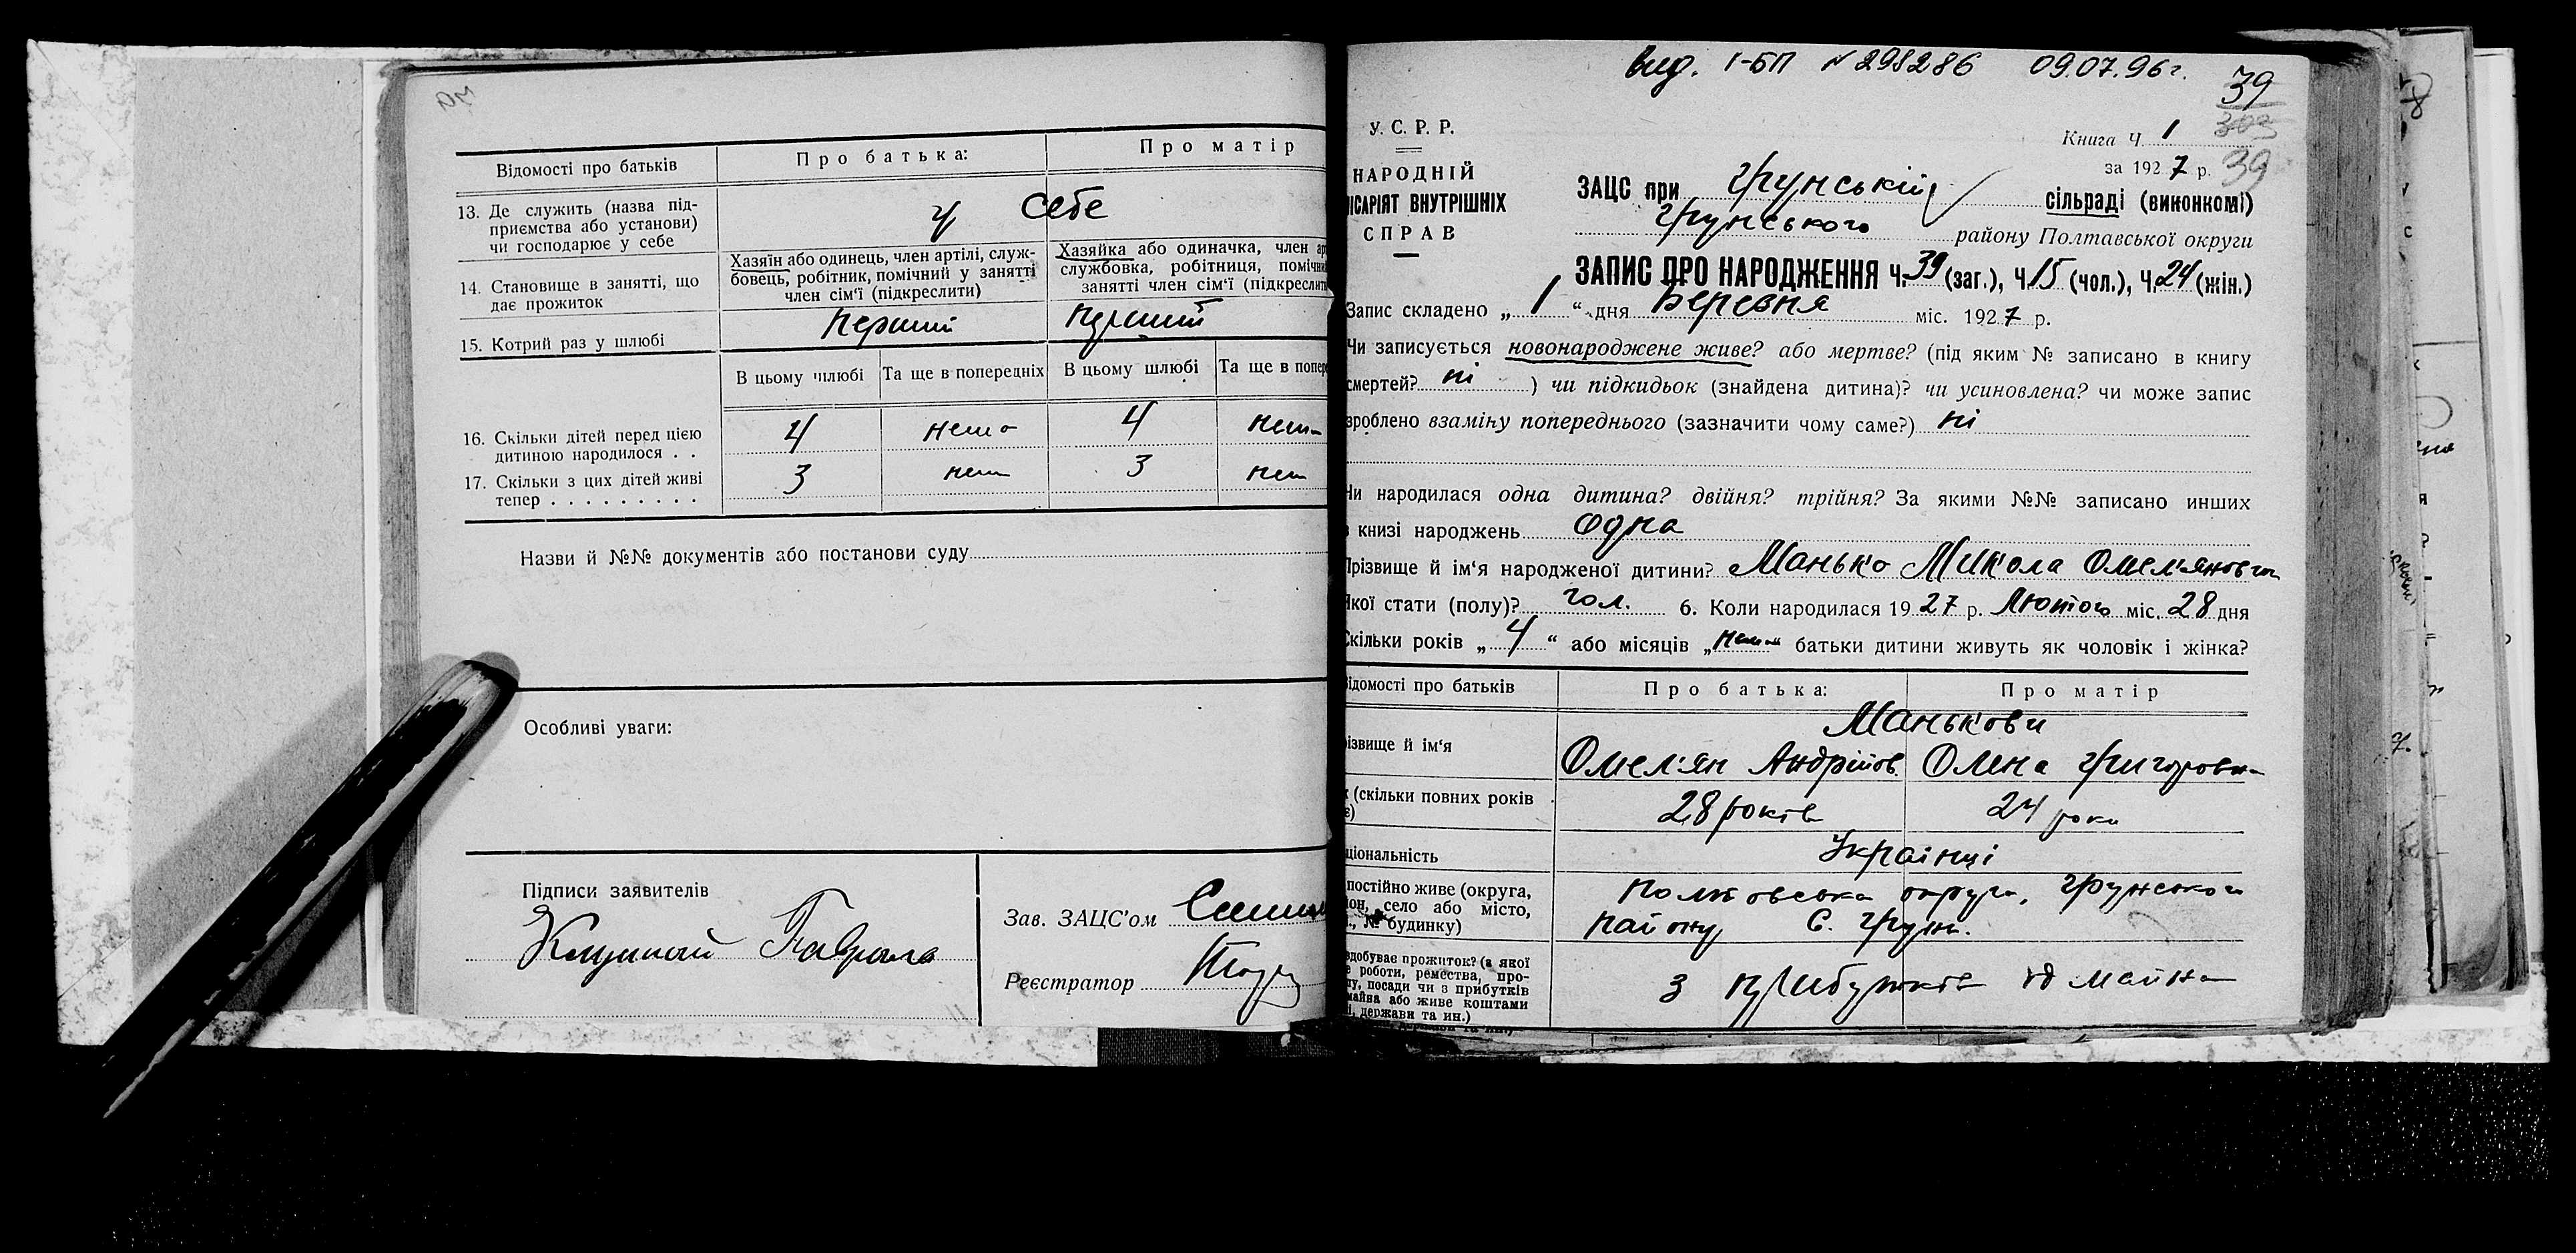 Відомості про батьків
Про батька:
Про матір
13. Де служить (назва під-
приємства або установи)
чи господарює у себе
у себе
14. Становище в занятті, що
дає прожиток
Хазяїн або одинець, член артілі, служ-
бовець, робітник, помічний у занятті
член сім'ї (підкреслити)
Хазяйка або одиначка, член ар
службовка, робітниця, помічни
занятті член сім'ї (підкреслити
15. Котрий раз у шлюбі
перший
перший
В цьому шлюбі
Та ще в попередніх
В цьому шлюбі
Та ще в попере
16. Скільки дітей перед цією
дитиною народилося . .
4
нема
4
нема
17. Скільки з цих дітей живі
тепер . . . . . . . . .
3
нема
3
нема
Назви й №№ документів або постанови суду
Особливі уваги:
Підписи заявителів
Зав. ЗАЦС'ом
Реєстратор
вид. І-БП № 298286 09.07.96г.
39
303
39
У. С. Р. Р.
НАРОДНІЙ
ІСАРІЯТ ВНУТРІШНІХ
СПРАВ
Книга Ч 1
за 1927 р.
ЗАЦС при Грунській сільраді (виконкомі)
Грунського району Полтавської округи
ЗАПИС ПРО НАРОДЖЕННЯ Ч. 39 (заг.), Ч 15 (чол.), Ч. 24 (жін.)
Запис складено „ 1 “ дня Березня міс. 1927 р.
Чи записується новонароджене живе? або мертве? (під яким № записано в книгу
смертей? ні ) чи підкидьок (знайдена дитина)? чи усиновлена? чи може запис
зроблено взаміну попереднього (зазначити чому саме?) ні
Чи народилася одна дитина? двійня? трійня? За якими №№ записано инших
в книзі народжень одна
Прізвище й ім'я народженої дитини? Манько Микола Омел'янович
Якої стати (полу)? чол. 6. Коли народилася 1927 р. Лютого міс. 28 дня
Скільки років „ 4 “ або місяців „ нема “ батьки дитини живуть як чоловік і жінка?
Відомості про батьків
Про батька:
Про матір
різвище й ім'я
Манькови
Омел'ян Андрійов.
Олена Григоровна
(скільки повних років
є)
28 років
24 роки
ціональність
Українці
постійно живе (округа,
он, село або місто,
., № будинку)
Полтавська округа, Грунського
району с. Грунь.
здобуває прожиток? (з якої
е роботи, ремества, про-
лу, посади чи з прибутків
майна або живе коштами
і, держави та ин.)
З прибутків од майна